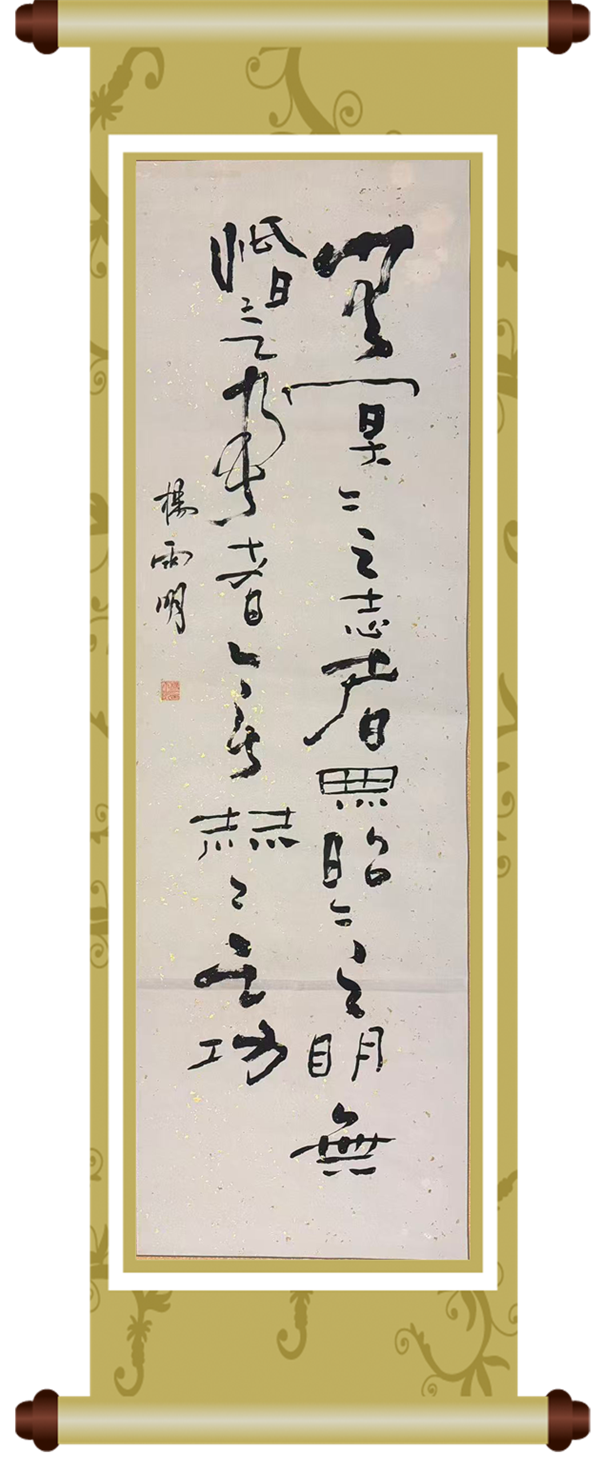 無冥々之志者無昭々之明無
惛々之事者無赫々之功
楊雨明